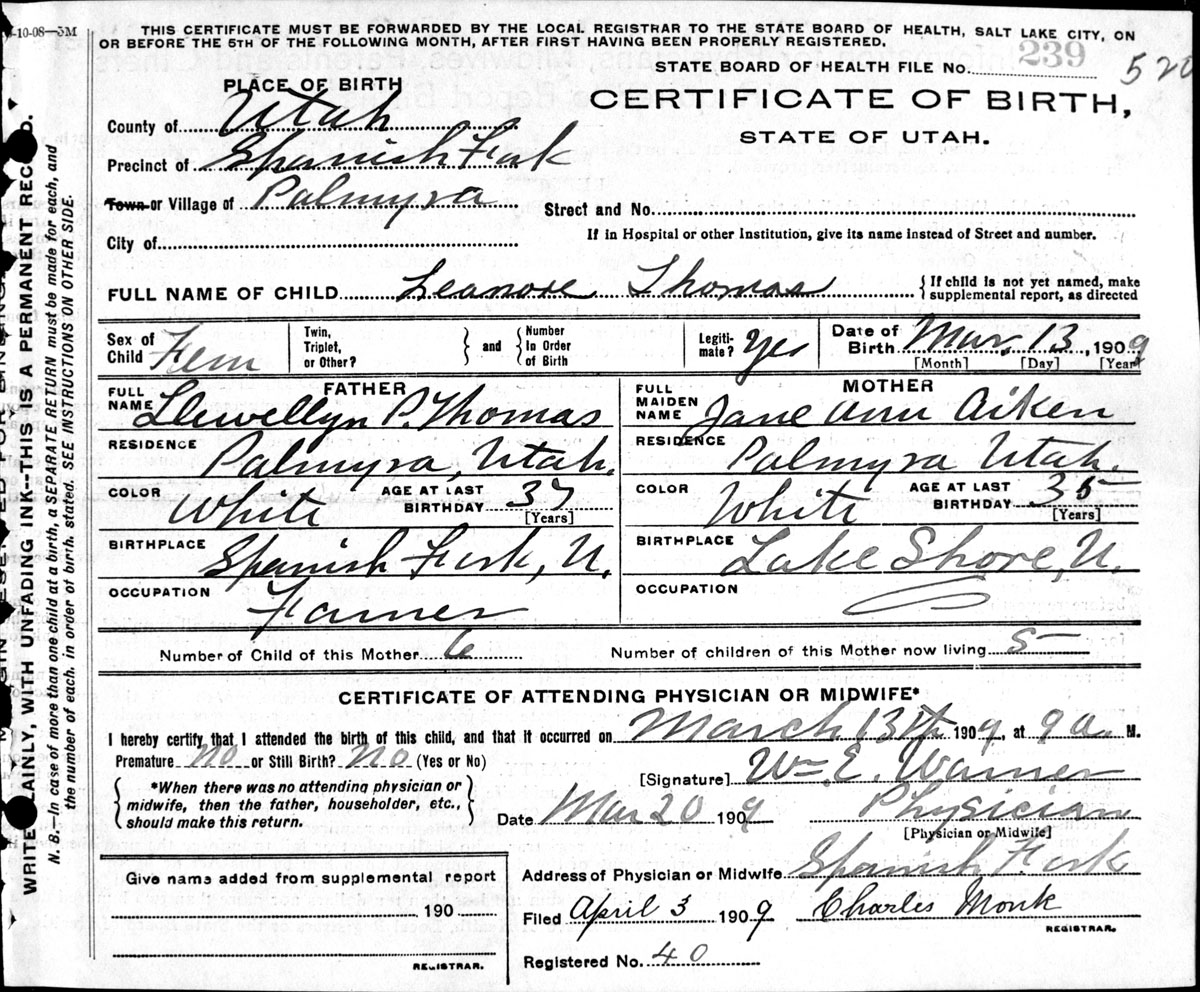 -10-08—3M
THIS CERTIFICATE MUST BE FORWARDED BY THE LOCAL REGISTRAR TO THE STATE BOARD OF HEALTH, SALT LAKE CITY, ON
OR BEFORE THE 5TH OF THE FOLLOWING MONTH, AFTER FIRST HAVING BEEN PROPERLY REGISTERED.
STATE BOARD OF HEALTH FILE No. 239 520
PLACE OF BIRTH
CERTIFICATE OF BIRTH,
STATE OF UTAH.
County of Utah
Precinct of Spanish Fork
Town or Village of Palmyra
Street and No.
City of
If in Hospital or other Institution, give its name instead of Street and number.
FULL NAME OF CHILD Leanore Thomas { If child is not yet named, make
supplemental report, as directed
Sex of Child Fem
Twin, Triplet, or Other? } and { Number In Order of Birth
Legiti-mate? Yes
Date of Birth Mar. 13, 1909
[Month] [Day] [Year]
FATHER
FULL NAME Llewellyn P. Thomas
RESIDENCE Palmyra, Utah.
COLOR White AGE AT LAST BIRTHDAY 37
[Years]
BIRTHPLACE Spanish Fork, U.
OCCUPATION Farmer
MOTHER
FULL MAIDEN NAME Jane Ann Aiken
RESIDENCE Palmyra Utah.
COLOR White AGE AT LAST BIRTHDAY 35
[Years]
BIRTHPLACE Lake Shore, U.
OCCUPATION
Number of Child of this Mother 6 Number of children of this Mother now living 5
CERTIFICATE OF ATTENDING PHYSICIAN OR MIDWIFE*
I hereby certify that I attended the birth of this child, and that it occurred on March 13th 1909, at 9 a. M.
Premature No or Still Birth? No (Yes or No)
[Signature] Wm E. Warner
{ *When there was no attending physician or
midwife, then the father, householder, etc.,
should make this return. }
Date Mar 20 1909 Physician
[Physician or Midwife]
Address of Physician or Midwife Spanish Fork
Give name added from supplemental report
190
REGISTRAR.
Filed April 3 1909 Charles Monk
REGISTRAR.
Registered No. 40
WRITE PLAINLY, WITH UNFADING INK--THIS IS A PERMANENT RECORD.
N. B.—In case of more than one child at a birth, a SEPARATE RETURN must be made for each, and
the number of each, in order of birth, stated. SEE INSTRUCTIONS ON OTHER SIDE.